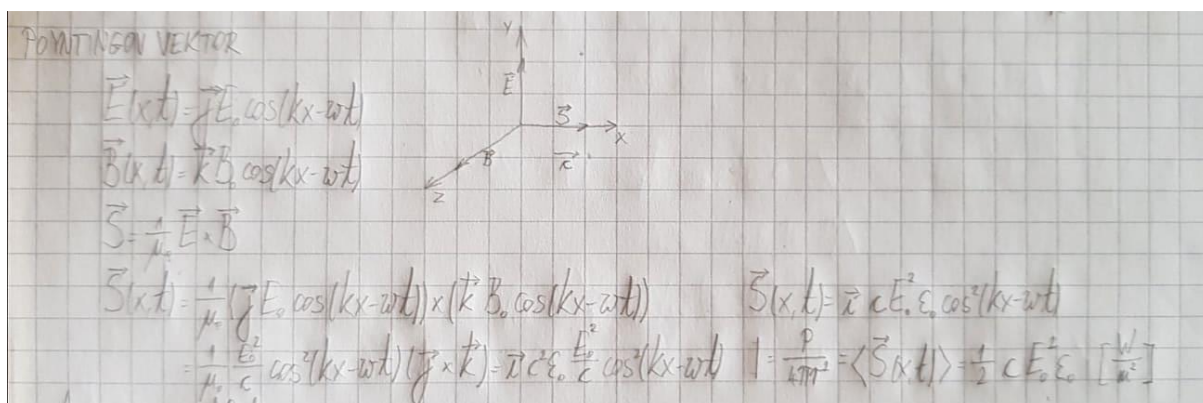 POYNTINGOV VEKTOR
E⃗(x,t) = j⃗E₀ cos(kx-ωt)
B⃗(x,t) = k⃗B₀ cos(kx-ωt)
S⃗ = 1/μ₀ E⃗ × B⃗
S⃗(x,t) = 1/μ₀ (j⃗E₀ cos(kx-ωt)) × (k⃗ B₀ cos(kx-ωt))
= 1/μ₀ E₀²/c cos²(kx-ωt) (j⃗ × k⃗) = i⃗ c²ε₀ E₀²/c cos²(kx-ωt)
Y
E⃗
S⃗
X
B⃗
Z
S⃗(x,t) = i⃗ c E₀² ε₀ cos²(kx-ωt)
I = P/4πr² = ⟨S⃗(x,t)⟩ = 1/2 c E₀² ε₀ [W/m²]